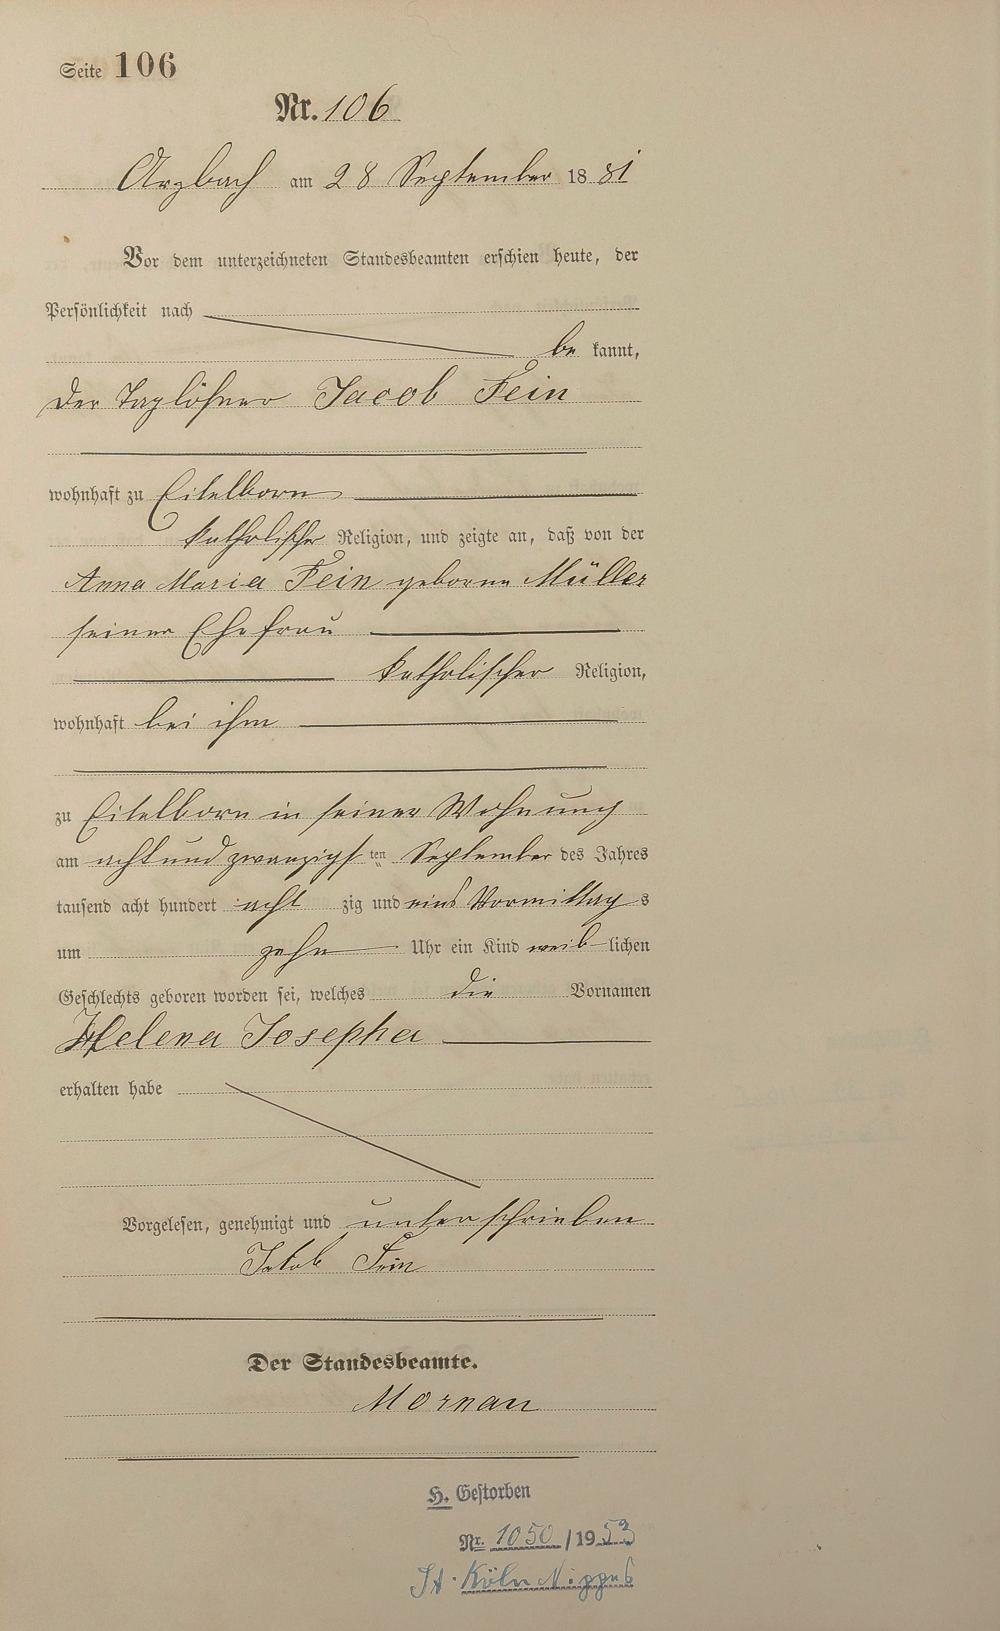 Seite 106
Nr. 106
Arzbach am 28 September 1881
Vor dem unterzeichneten Standesbeamten erschien heute, der
Persönlichkeit nach
be kannt,
der Taglöhner Jacob Fein
wohnhaft zu Eitelborn
katholischer Religion, und zeigte an, daß von der
Anna Maria Fein geborne Müller
seiner Ehefrau
katholischer Religion,
wohnhaft bei ihm
zu Eitelborn in seiner Wohnung
am acht und zwanzigst ten September des Jahres
tausend acht hundert acht zig und eins Vormittag s
um zehn Uhr ein Kind weib lichen
Geschlechts geboren worden sei, welches die Vornamen
Helena Josepha
erhalten habe
Vorgelesen, genehmigt und unterschrieben
Jakob Fein
Der Standesbeamte.
Mornau
H. Gestorben
Nr. 1050/1953
St. Köln Nippes